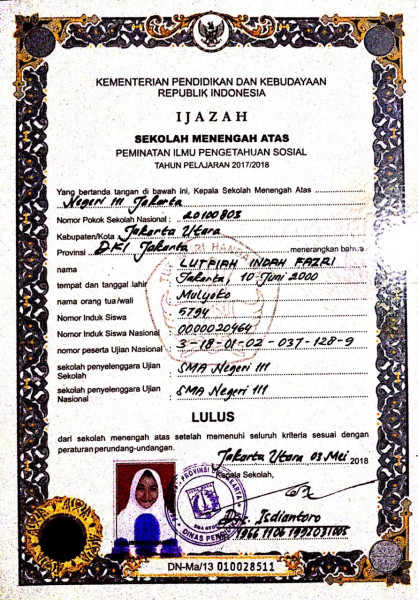 KEMENTERIAN PENDIDIKAN DAN KEBUDAYAAN
REPUBLIK INDONESIA
IJAZAH
SEKOLAH MENENGAH ATAS
PEMINATAN ILMU PENGETAHUAN SOSIAL
TAHUN PELAJARAN 2017/2018
Yang bertanda tangan di bawah ini, Kepala Sekolah Menengah Atas
Negeri 111 Jakarta
Nomor Pokok Sekolah Nasional : 20100803
Kabupaten/Kota Jakarta Utara
Provinsi DKI Jakarta menerangkan bahwa:
nama : LUTFIAH INDAH FAZRI
tempat dan tanggal lahir : Jakarta, 10 Juni 2000
nama orang tua/wali : Mulyoko
Nomor Induk Siswa : 5794
Nomor Induk Siswa Nasional : 0000020464
nomor peserta Ujian Nasional : 3-18-01-02-037-128-9
sekolah penyelenggara Ujian Sekolah : SMA Negeri 111
sekolah penyelenggara Ujian Nasional : SMA Negeri 111
LULUS
dari sekolah menengah atas setelah memenuhi seluruh kriteria sesuai dengan
peraturan perundang-undangan.
Jakarta Utara 03 Mei 2018
Kepala Sekolah,
Drs. Isdiantoro
DN-Ma/13 010028511